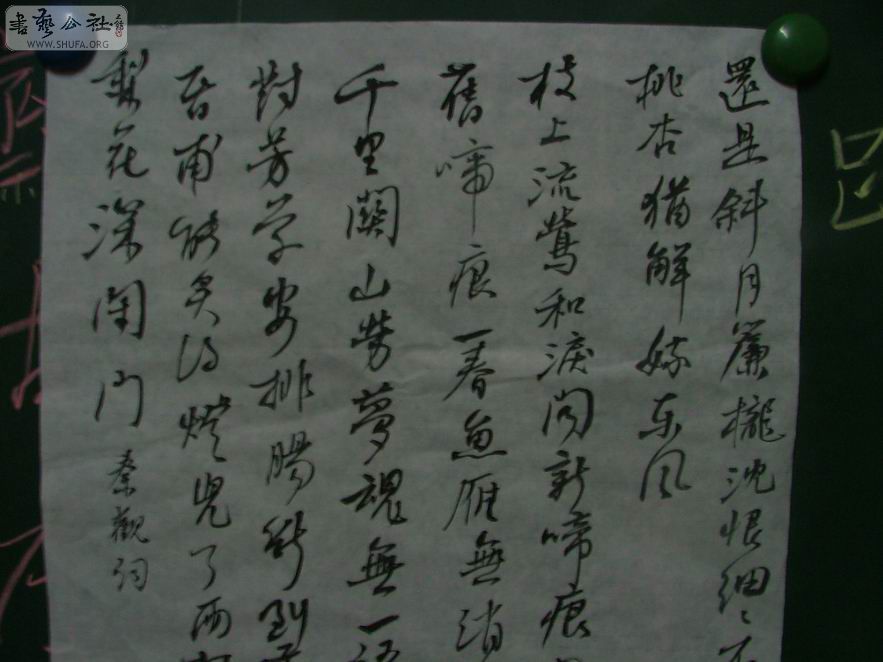 書藝公社
WWW.SHUFA.ORG
還是斜月簾櫳沈恨細〻不
桃杏猶解嫁东风
枝上流鶯和淚闻新啼痕
舊啼痕一春魚雁無消
千里關山勞夢魂無一語
對芳尊安排腸斷到黃
昏甫能炙得燈兒了雨打
梨花深闭门
秦觀词